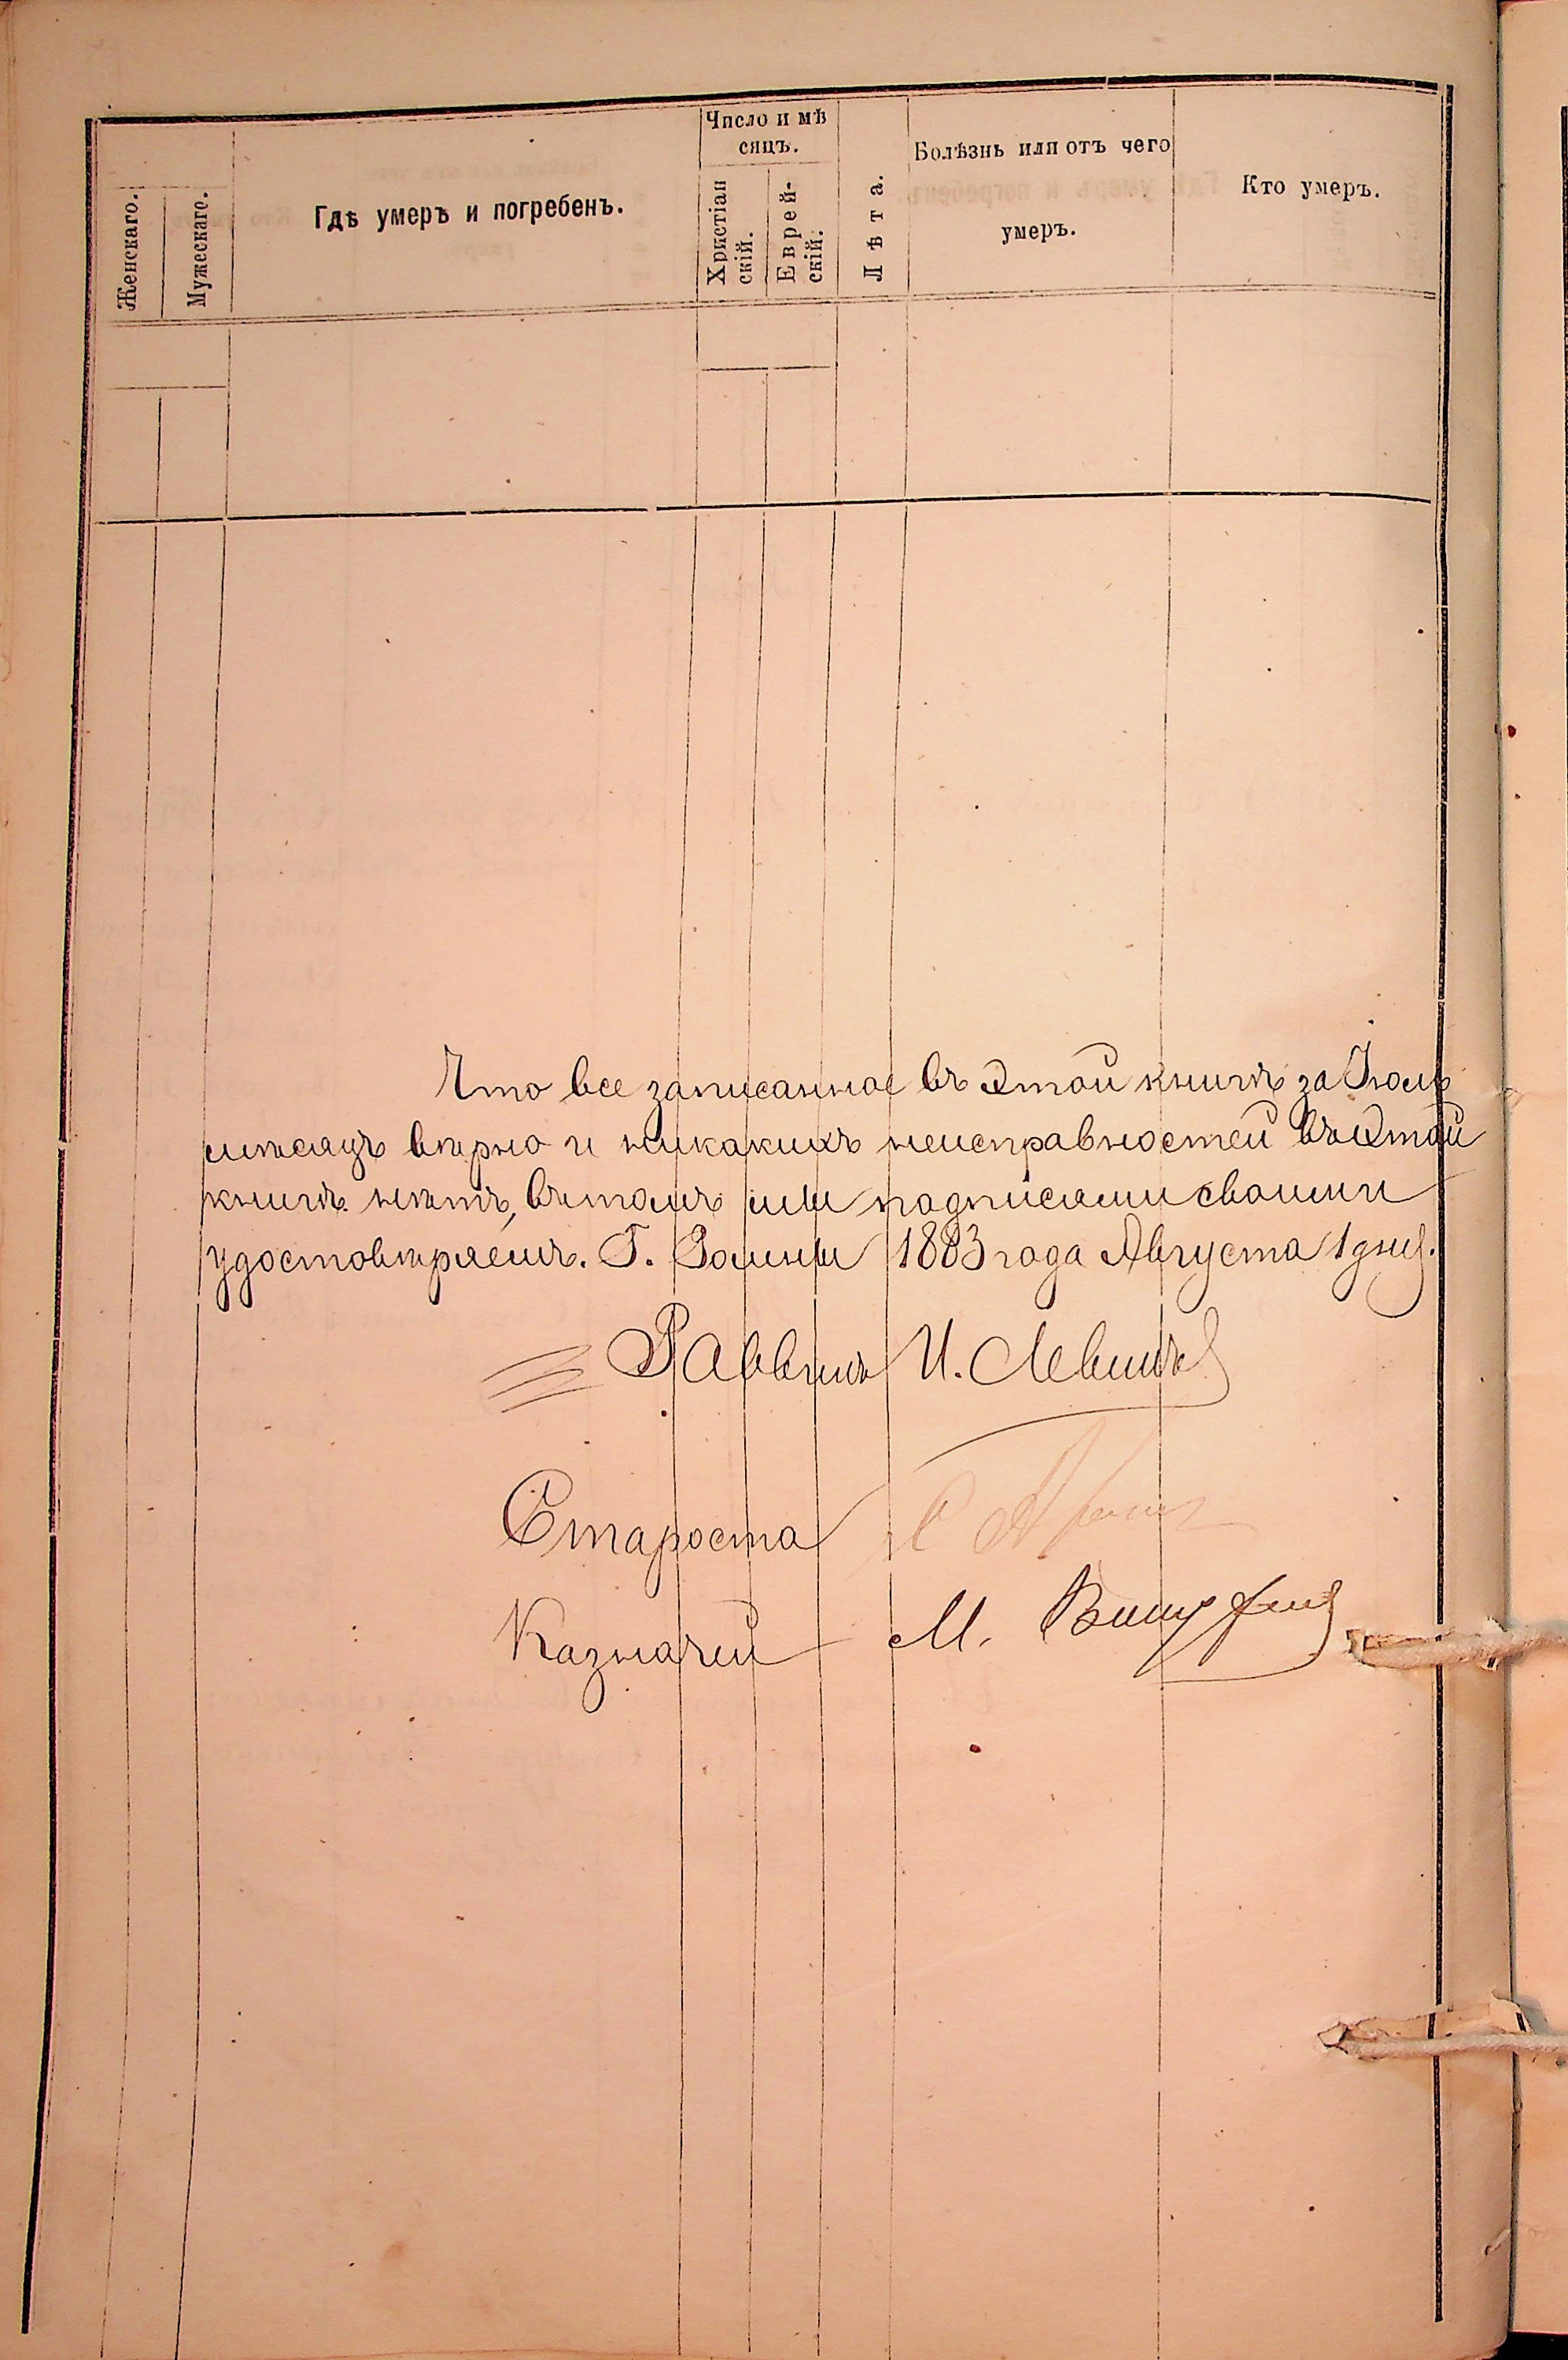 Число и мѣ
сяцъ.
Женскаго.
Мужескаго.
Гдѣ умеръ и погребенъ.
Христіан
скій.
Еврей-
скій.
Лѣта.
Болѣзнь или отъ чего
умеръ.
Кто умеръ.
Что все записанное въ Этой книгѣ за Іюль
мѣсяцъ вѣрно и никакихъ неисправностей въ Этой
книгѣ нѣтъ, въ томъ мы подписами своими
удостовѣряемъ. Г. Ромны 1883 года Августа 1 дня.
Раввинъ И. Левинъ
Староста С
Казначей М.